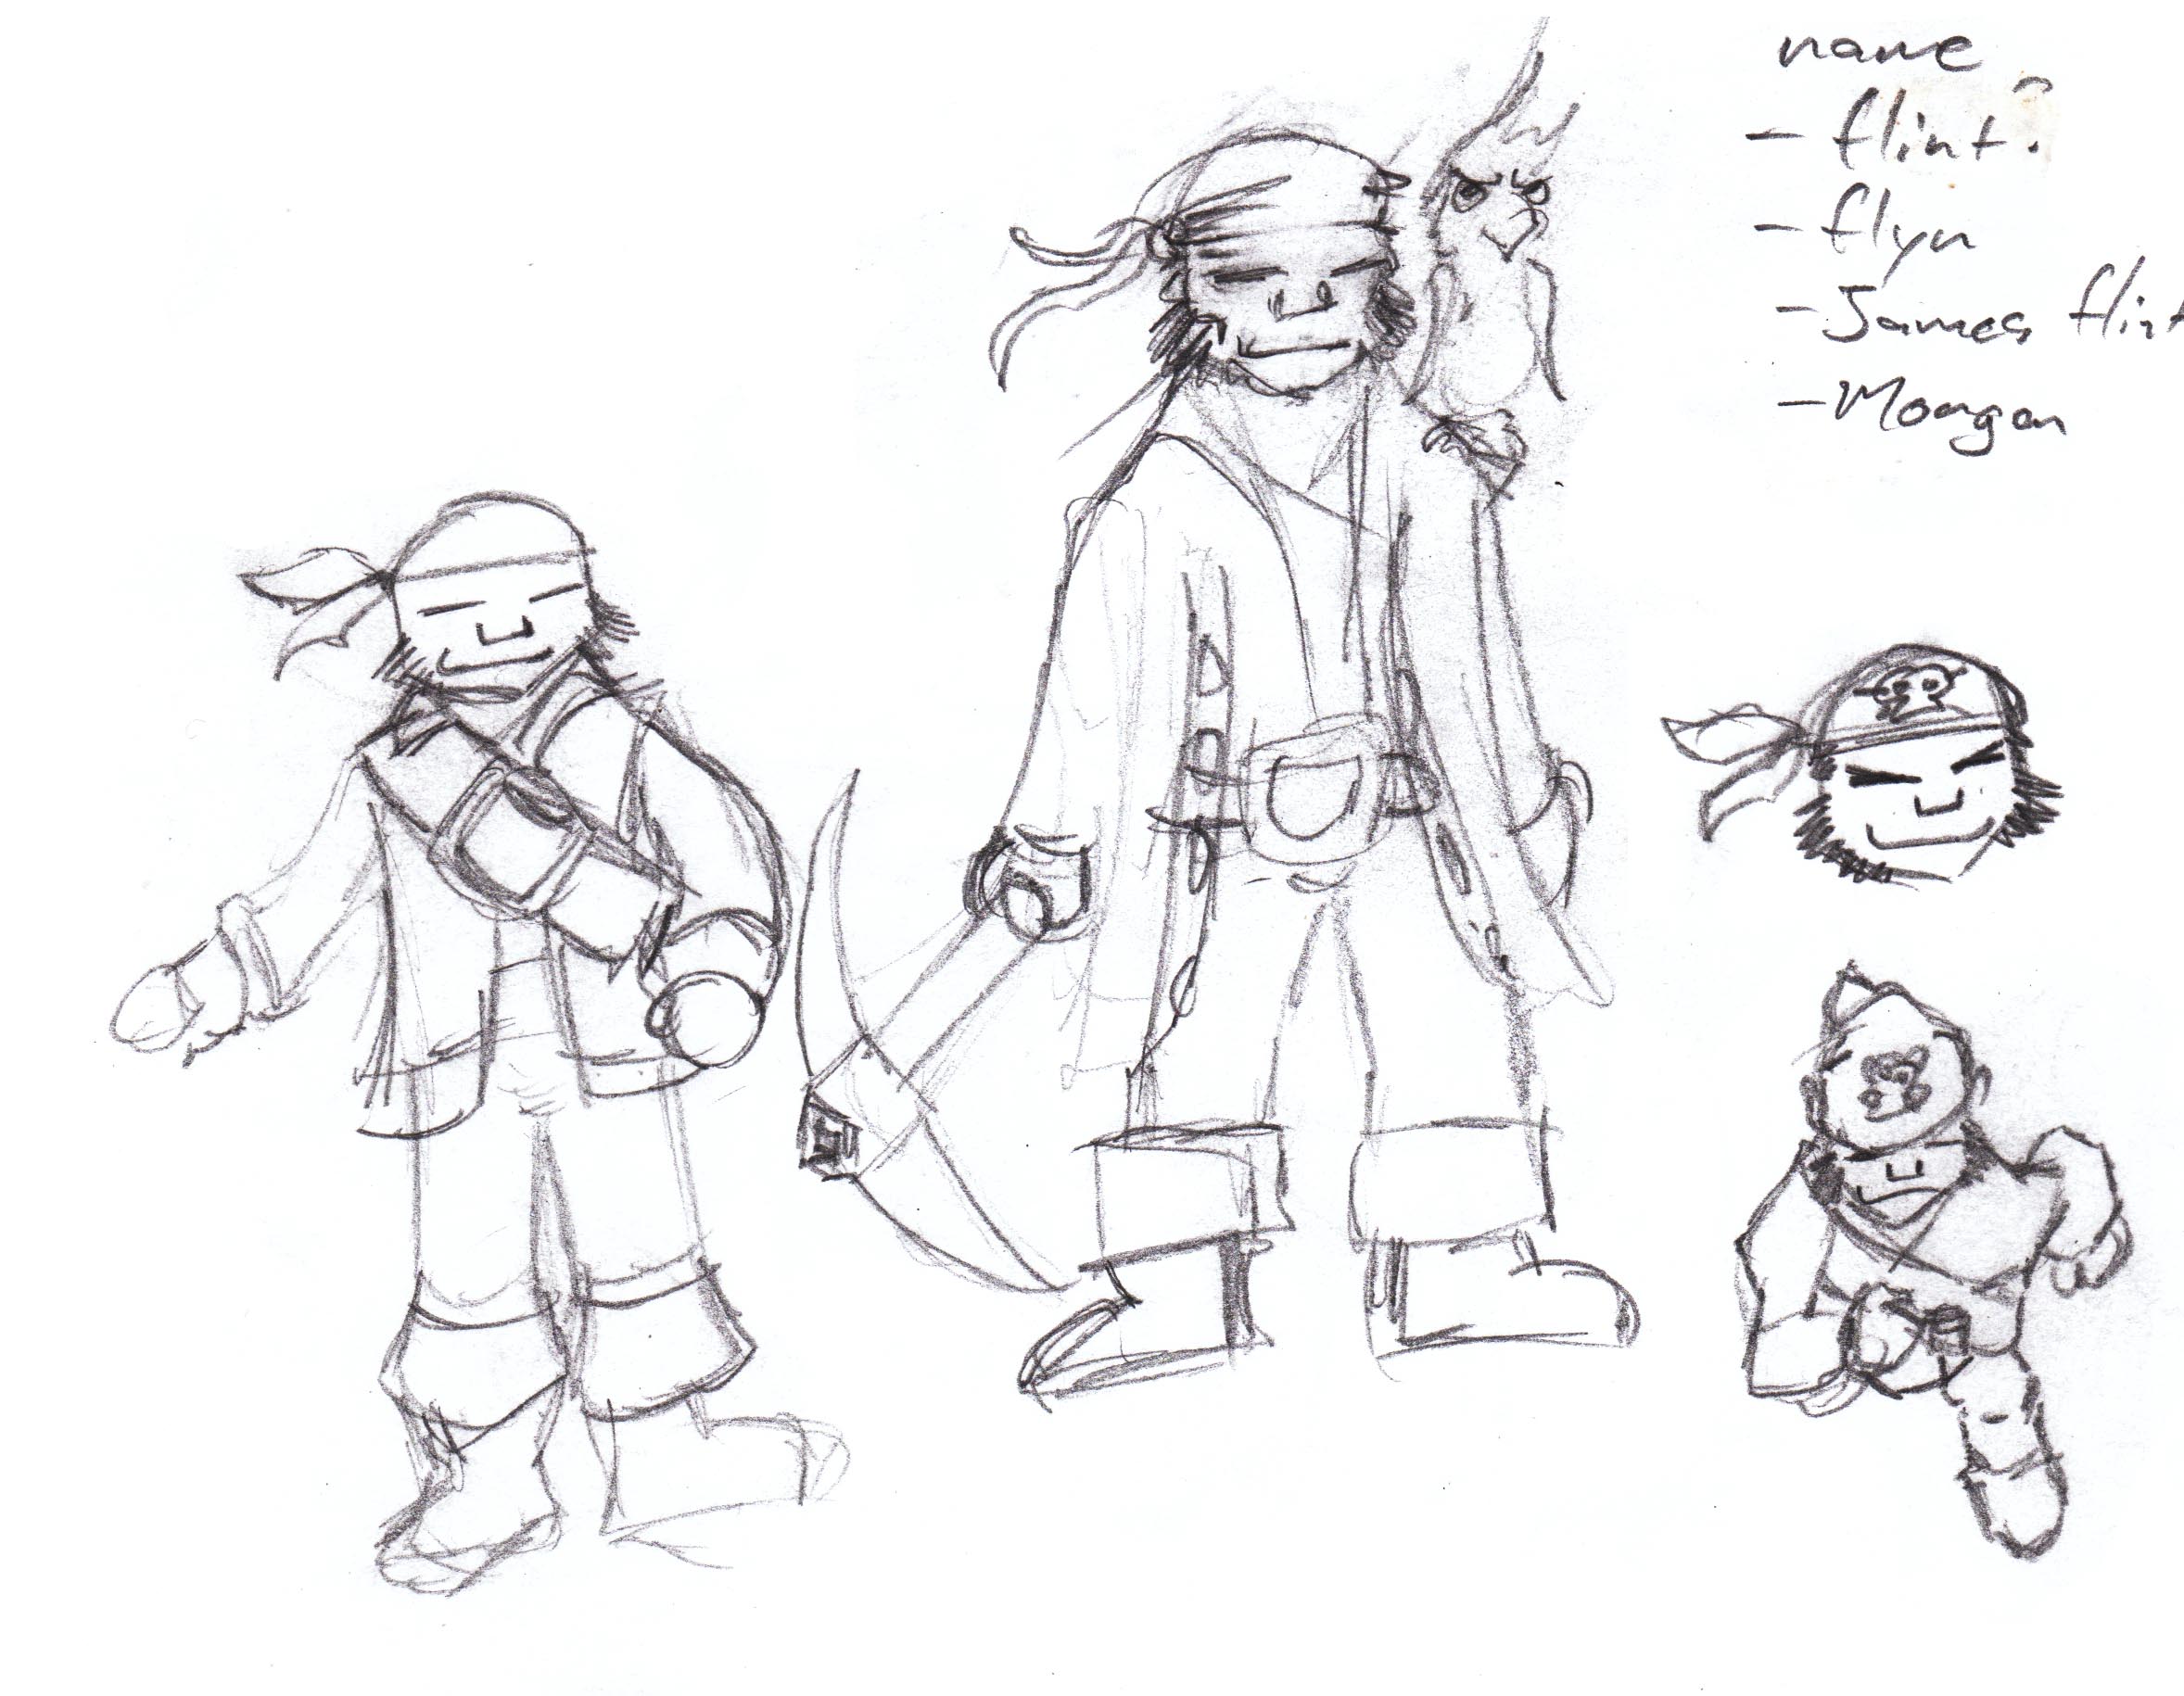 name
- flint?
- flyn
- James flint
- Morgan